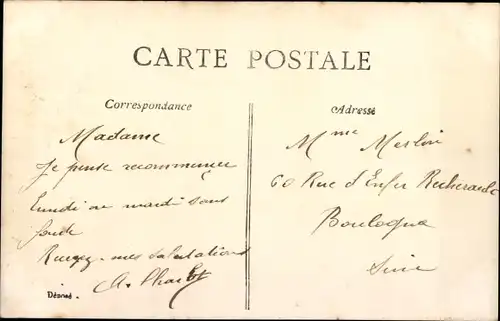 CARTE POSTALE
Correspondance
Adresse
Madame
Je pense recommencer
Lundi ou mardi sans
faute
Recevez mes salutations
Déposé
Mme Merlin
60 Rue d'Enfer
Boulogne
Seine